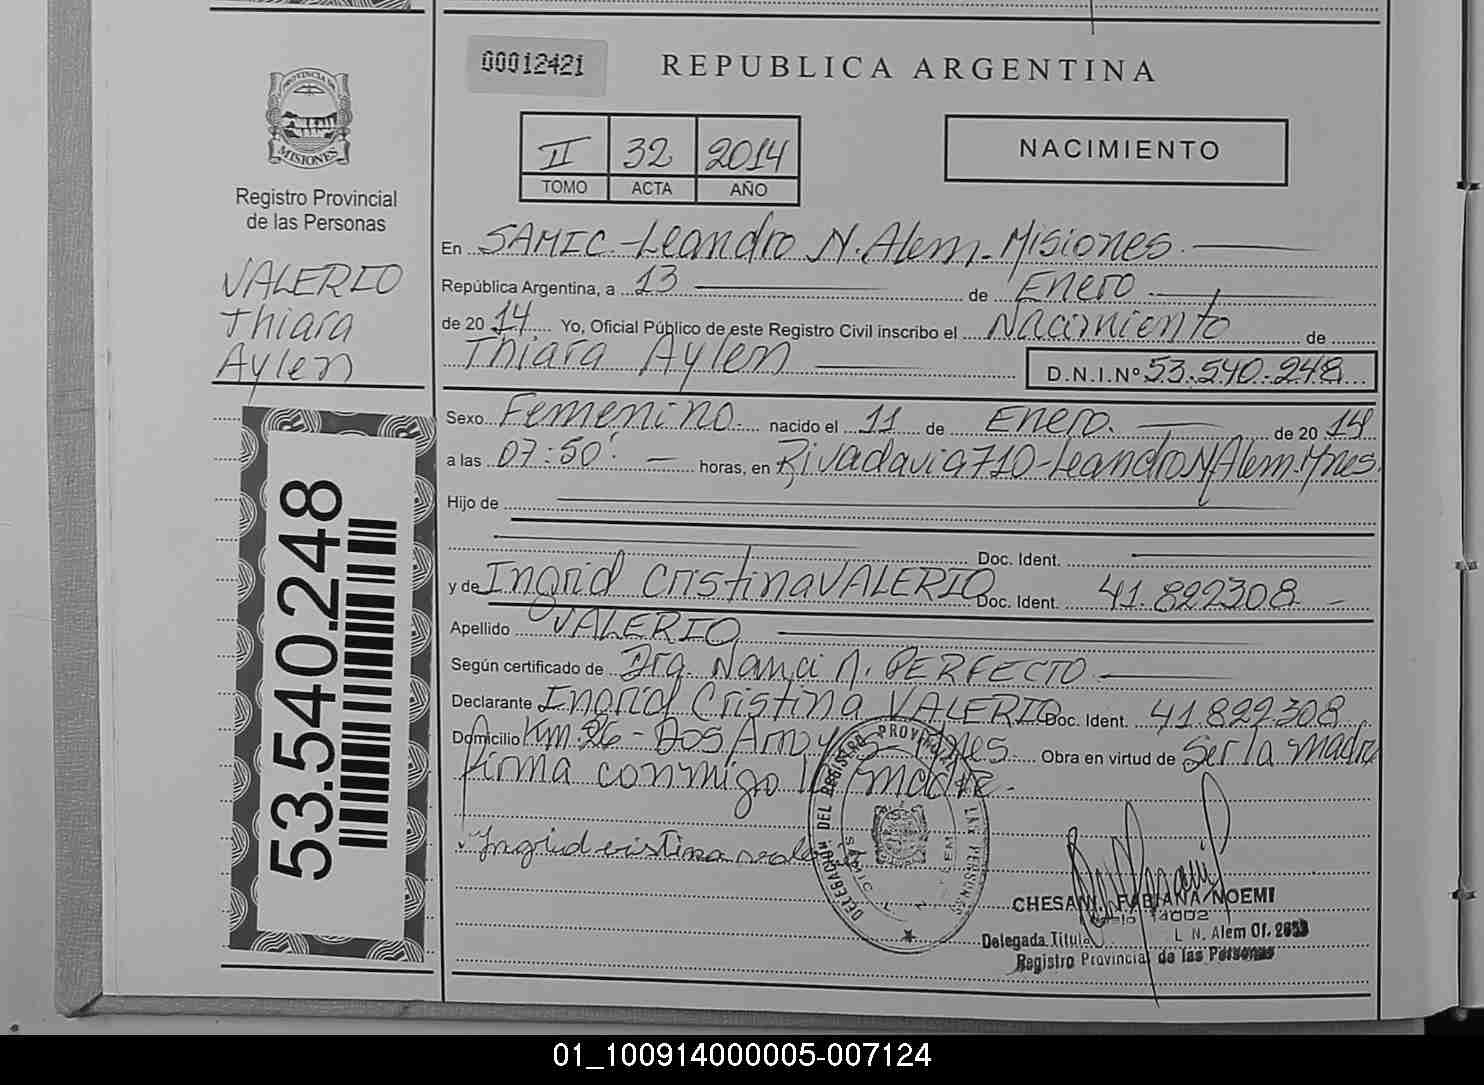 00012421
REPUBLICA ARGENTINA
PROVINCIA DE
MISIONES
Registro Provincial
de las Personas
II 32 2014
TOMO ACTA AÑO
NACIMIENTO
VALERIO
Thiara
Aylen
En SAMIC-Leandro N. Alem-Misiones
República Argentina, a 13 de Enero
de 20 14 Yo, Oficial Público de este Registro Civil inscribo el Nacimiento de
Thiara Aylen D.N.I.Nº 53.540.248
Sexo Femenino nacido el 11 de Enero. de 20 14
a las 07:50' horas, en Rivadavia 710-Leandro N Alem-Mnes.
Hijo de
Doc. Ident.
y de Ingrid Cristina VALERIO Doc. Ident. 41.822308
Apellido VALERIO
Según certificado de Dra. Nanci N. PERFECTO
Declarante Ingrid Cristina VALERIO Doc. Ident. 41.822308
Domicilio Km:26-Dos Arroyos-Mnes. Obra en virtud de Ser la madre
firma conmigo la madre.
Ingrid cristina
DELEGACION DEL REGISTRO PROVINCIAL DE LAS PERSONAS
SAMIC L. N. ALEM
CHESANI, FABIANA NOEMI
Delegada Titular L N. Alem Of.
Registro Provincial de las Personas
53.540.248
01_100914000005-007124